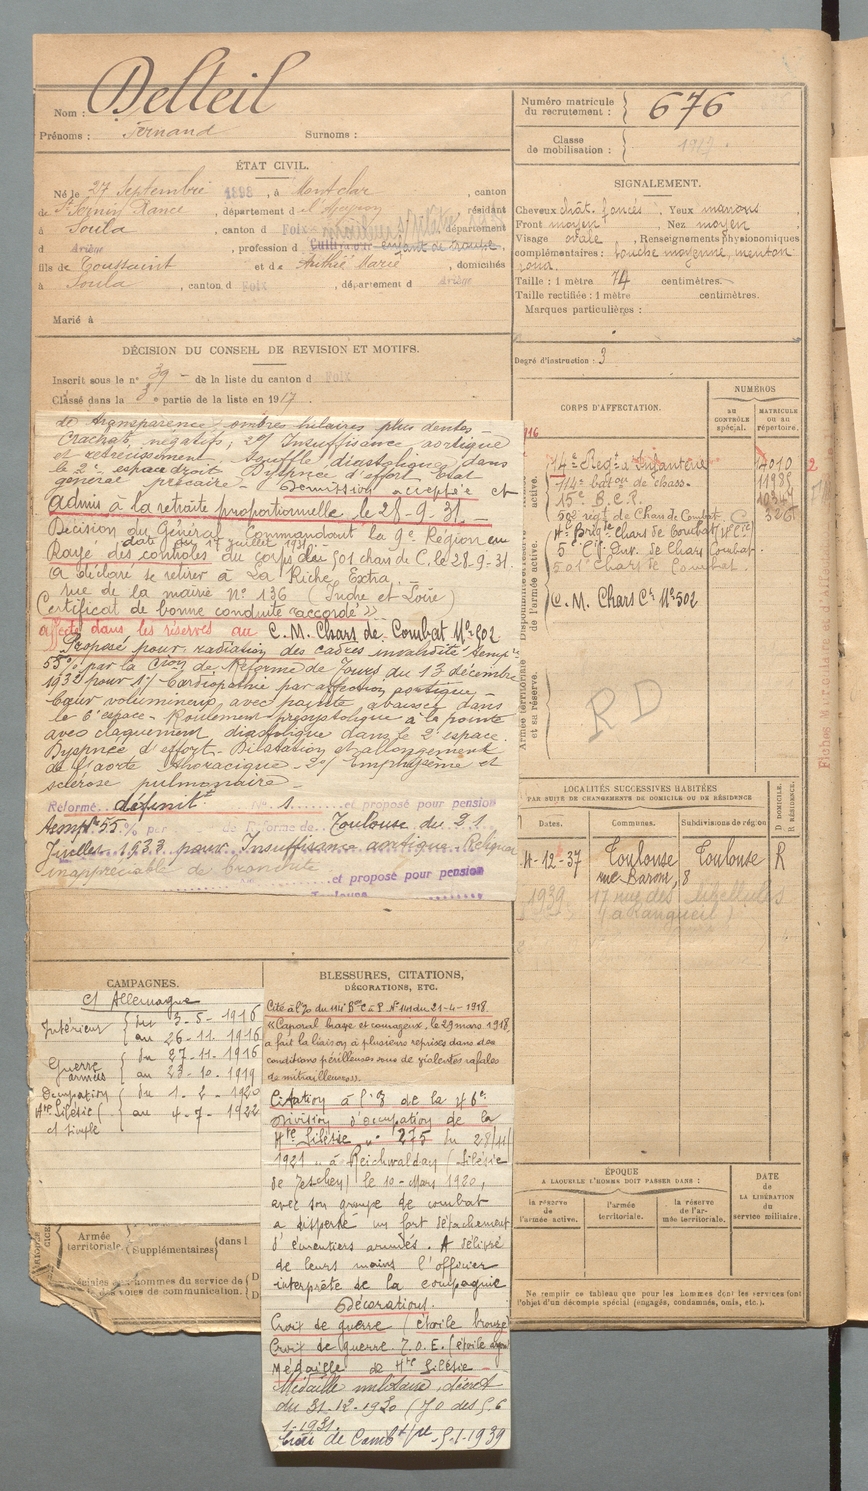 Nom : Delteil
Prénoms : Fernand Surnoms :
ÉTAT CIVIL.
Né le 27 Septembre 1898, à Montclar, canton
de St Sernin Rance, département d l'Aveyron, résidant
à Soula, canton d Foix, département
d Ariège, profession d Cultivateur enfant de troupe,
fils de Toussaint et de Authié Marie, domiciliés
à Soula, canton d Foix, département d Ariège
Marié à
DÉCISION DU CONSEIL DE REVISION ET MOTIFS.
Inscrit sous le n° 39 de la liste du canton d Foix
Classé dans la 3e partie de la liste en 1917.
de transparence, ombres hilaires plus denses
Crachats négatifs; 2°/ Insuffisance aortique
et rétrécissement. Souffle diastolique dans
le 2e espace droit Dyspnée d'effort. Etat
général précaire. Démission acceptée et
admis à la retraite proportionnelle le 28-9-31
Décision du Général Commandant la 9e Région en
date du 17 juillet 1931.
Rayé des controles du corps des 501 chars de C. le 28-9-31.
a déclaré se retirer à La Riche Extra,
rue de la mairie N° 136 (Indre et Loire)
Certificat de bonne conduite "accordé"
affecté dans les réserves au C.M. Chars de Combat N° 502
Proposé pour radiation des cadres invalidité temp're
55% par la Cson de Réforme de Tours du 13 décembre
1932 pour 1°/ Cardiopathie par affection aortique
Cœur volumineux avec pointe abaissée dans
le 6e espace - Roulement présystolique à la pointe
avec claquement diastolique dans le 2e espace.
Dyspnée d'effort - Dilatation et allongement
de l'aorte thoracique - 2°/ Emphysème et
sclérose pulmonaire
Réformé définitt N° 1 et proposé pour pension
temp're 55% par de Réforme de Toulouse du 21
Juillet 1933 pour Insuffisance aortique. Reliquat
inappréciable de bronchite
et proposé pour pension
Toulouse
CAMPAGNES.
ct Allemagne
Intérieur { du 3-5-1916
au 26-11-1916
Guerre { du 27-11-1916
armées au 23-10-1919
Occupation { du 1-2-1920
Hte Silésie au 4-7-1922
ct simple
Armée territoriale. (Supplémentaires) dans l
éciales aux hommes du service de
et des voies de communication.
BLESSURES, CITATIONS, DÉCORATIONS, ETC.
Cité à l'o du 114e Bon C à P N° 141 du 21-4-1918.
"Caporal brave et courageux, le 29 mars 1918,
a fait la liaison à plusieurs reprises dans des
conditions périlleuses sous de violentes rafales
de mitrailleuses".
Citation à l'o de la 46e
Division d'occupation de la
Hte Silésie n° 275 du 28/11/
1921 "à Reichwaldau (Silésie
de Teschen) le 10 Mars 1920,
avec son groupe de combat
a dispersé un fort détachement
d'émeutiers armés. A délivré
de leurs mains l'officier
interprète de la compagnie
Décorations.
Croix de guerre (étoile bronze
Croix de guerre T.O.E. (étoile argent
Médaille de Hte Silésie
Médaille militaire, décret
du 31-12-1930 (JO des 5, 6
1-1931.
Croix de Combt 5-1-1939
Numéro matricule du recrutement : 676
Classe de mobilisation : 1917
SIGNALEMENT.
Cheveux chât. foncés, Yeux marrons
Front moyen, Nez moyen
Visage ovale, Renseignements physionomiques
complémentaires : bouche moyenne, menton
rond.
Taille : 1 mètre 74 centimètres.
Taille rectifiée : 1 mètre centimètres.
Marques particulières :
Degré d'instruction : 3
CORPS D'AFFECTATION.
NUMÉROS
AU CONTRÔLE spécial.
MATRICULE OU AU répertoire.
14e Régt d'Infanterie 4010
114e baton de chass. 11989
15e B.C.P.
501e régt de Chars de Combat
4e Brigde Chars de Combat
5e Cie Ouv. de Chars Combat.
501e Chars de Combat.
C.M. Chars Ct N° 502
Disponibilité et réserve de l'armée active.
Armée territoriale et sa réserve.
RD
LOCALITÉS SUCCESSIVES HABITÉES
PAR SUITE DE CHANGEMENTS DE DOMICILE OU DE RÉSIDENCE
Dates. Communes. Subdivisions de région D DOMICILE. R RÉSIDENCE.
11-12-37 Toulouse Toulouse R
rue Baronie, 8
1939 17 rue des libellules
(à Rangueil)
ÉPOQUE
A LAQUELLE L'HOMME DOIT PASSER DANS :
la réserve de l'armée active.
l'armée territoriale.
la réserve de l'armée territoriale.
DATE de LA LIBÉRATION du service militaire.
Ne remplir ce tableau que pour les hommes dont les services font
l'objet d'un décompte spécial (engagés, condamnés, omis, etc.).